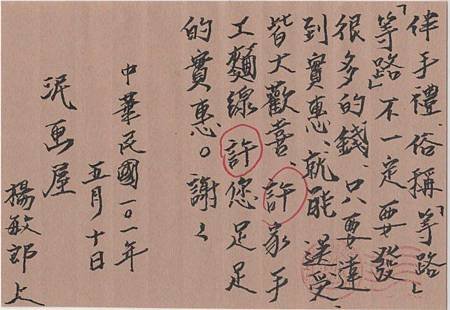 伴手禮、俗稱「等路」
「等路」不一定要發
很多的錢、只要達
到實惠、就能送受
皆大歡喜、許家手
工麵線許您足足
的實惠。謝々
中華民國一〇一年
五月十日
泥画屋
楊敏郎上